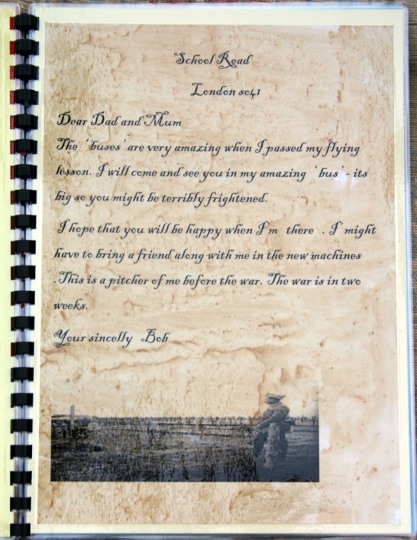 School Road
London so41
Dear Dad and Mum
The 'buses' are very amazing when I passed my flying
lesson. I will come and see you in my amazing 'bus' - its
big so you might be terribly frightened.
I hope that you will be happy when I'm there . I might
have to bring a friend along with me in the new machines
.This is a pitcher of me before the war. The war is in two
weeks.
Your sincelly Bob